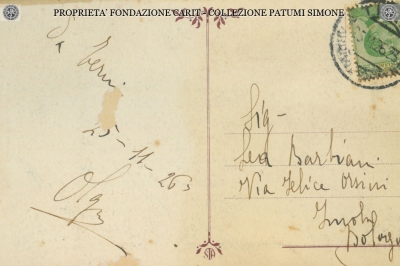 PROPRIETA' FONDAZIONE CARIT - COLLEZIONE PATUMI SIMONE
Terni
25-11-26
Olga
Sig-
Lea Barbiani
Via Felice Orsini
Imola
Bologna